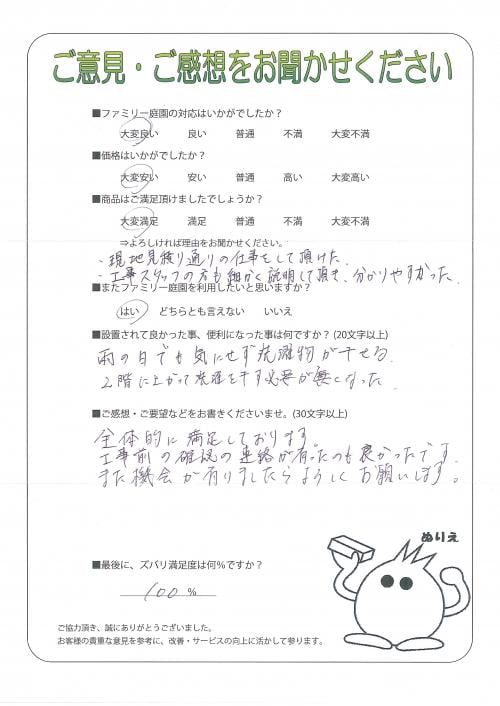 ご意見・ご感想をお聞かせください
■ファミリー庭園の対応はいかがでしたか？
大変良い 良い 普通 不満 大変不満
■価格はいかがでしたか？
大変安い 安い 普通 高い 大変高い
■商品はご満足頂けましたでしょうか？
大変満足 満足 普通 不満 大変不満
⇒よろしければ理由をお聞かせください。
・現地見積り通りの仕事をして頂けた。
・工事スタッフの方も細かく説明して頂き、分かりやすかった。
■またファミリー庭園を利用したいと思いますか？
はい どちらとも言えない いいえ
■設置されて良かった事、便利になった事は何ですか？(20文字以上)
雨の日でも気にせず洗濯物が干せる。
2階に上がって洗濯を干す必要が無くなった。
■ご感想・ご要望などをお書きくださいませ。(30文字以上)
全体的に満足しております。
工事前の確認の連絡が有ったのも良かったです。
また機会が有りましたらよろしくお願いします。
ぬりえ
■最後に、ズバリ満足度は何％ですか？
100 ％
ご協力頂き、誠にありがとうございました。
お客様の貴重な意見を参考に、改善・サービスの向上に活かして参ります。